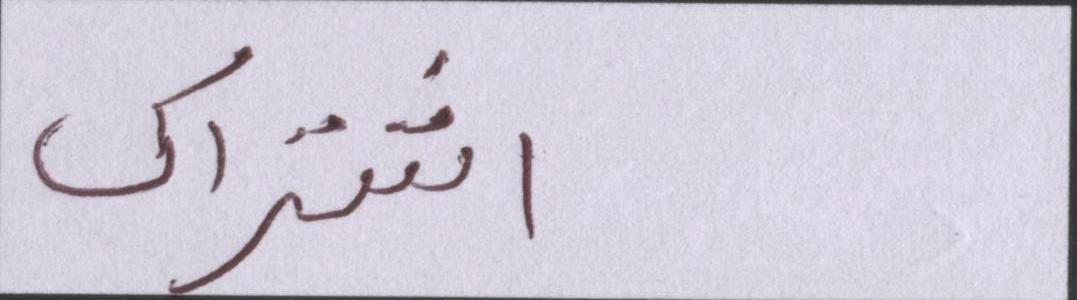 اشتراک